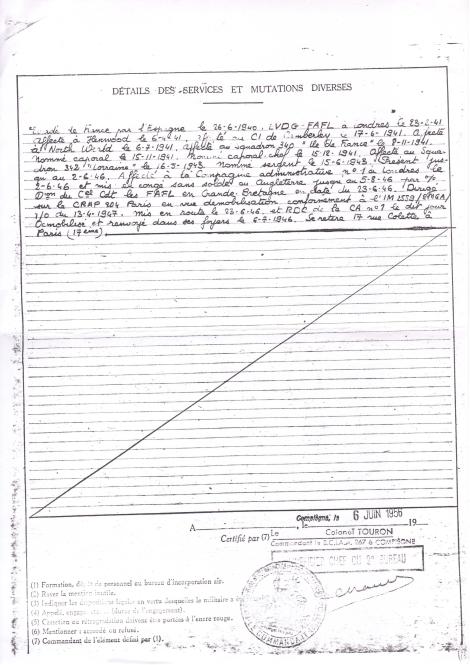 DÉTAILS DES SERVICES ET MUTATIONS DIVERSES
Évadé de France par l'Espagne le 26-6-1940. EVDG-FAFL à Londres le 23-2-41
Affecté à Henwood le 6-4-41. le au CI de Camberley le 17-6-1941. Affecté
à North Weald le 6-7-1941, affecté au squadron 340 "Ile de France" le 7-11-1941.
Nommé caporal le 15-11-1941. Nommé caporal-chef le 15.12.1941, affecté au Squa-
dron 342 "Lorraine" le 16-3-1943. Nommé sergent le 15-6-1943. Présent jus-
qu'au 2-6-46. Affecté à la Compagnie administrative n°1 à Londres le
2-6-46 et mis en congé sans solde en Angleterre jusqu'au 5-8-46 par
Don du Cel Cdt les FAFL en Grande Bretagne en date du 23-6-46. Dirigé
sur le CRAP 204 Paris en vue démobilisation conformément à l'IM 1559/
I/O du 13-4-1947. mis en route le 23-6-46. et RDC de la CA n°1 le dit jour
Démobilisé et renvoyé dans ses foyers le 6-7-1946. Se retire 17 rue Colette à
Paris (17ème)
Compiègne, le 6 JUIN 1956
A le 19
Certifié par (7) Le Colonel TOURON
Commandant le B.C.I.A.A. 267 à COMPIEGNE
CHEF DU BUREAU
COMMANDANT
(1) Formation, dépôt de personnel ou bureau d'incorporation air.
(2) Rayer la mention inutile.
(3) Indiquer les dispositions légales en vertu desquelles le militaire a
(4) Appelé, engagé (durée de l'engagement).
(5) Cassation ou rétrogradation doivent être portées à l'encre rouge.
(6) Mentionner : accordé ou refusé.
(7) Commandant de l'élément défini par (1).